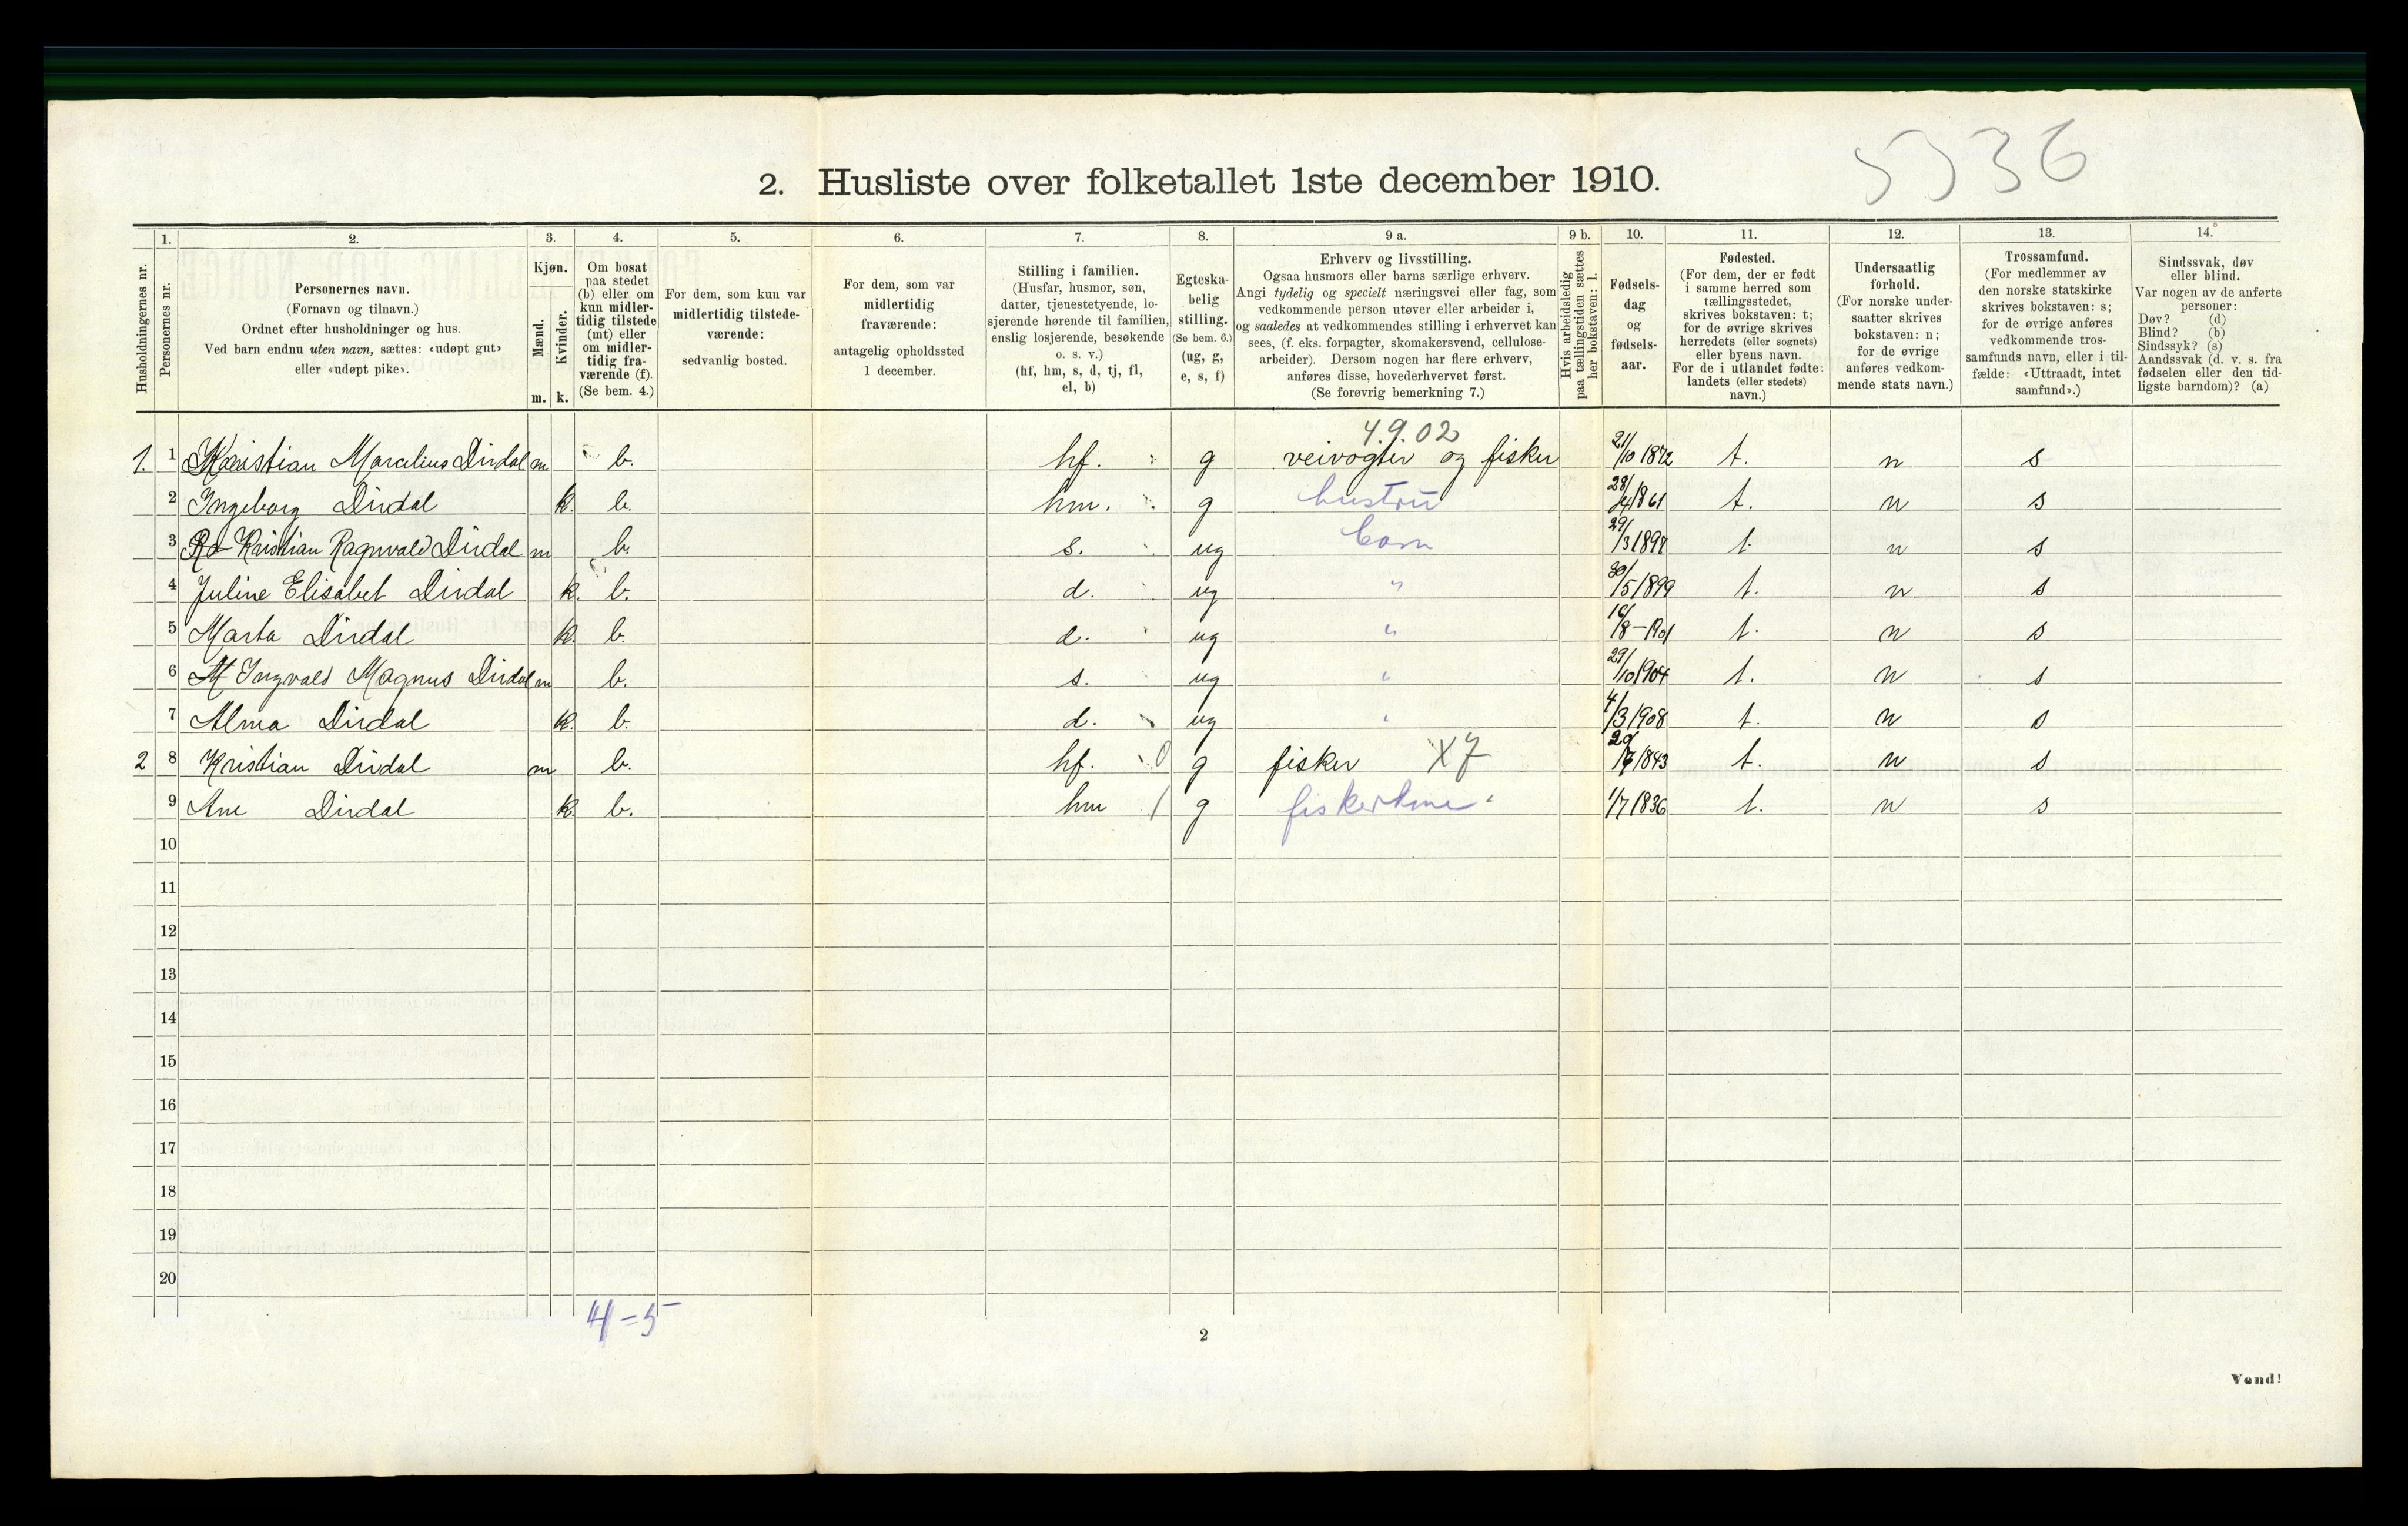 5536
2. Husliste over folketallet 1ste december 1910.
Husholdningernes nr.
1.
Personernes nr.
2.
Personernes navn.
(Fornavn og tilnavn.)
Ordnet efter husholdninger og hus.
Ved barn endnu uten navn, sættes: «udøpt gut»
eller «udøpt pike».
3.
Kjøn.
Mænd.
Kvinder.
m. k.
4.
Om bosat
paa stedet
(b) eller om
kun midler-
tidig tilstede
(mt) eller
om midler-
tidig fra-
værende (f).
(Se bem. 4.)
5.
For dem, som kun var
midlertidig tilstede-
værende:
sedvanlig bosted.
6.
For dem, som var
midlertidig
fraværende:
antagelig opholdssted
1 december.
7.
Stilling i familien.
(Husfar, husmor, søn,
datter, tjenestetyende, lo-
sjerende hørende til familien,
enslig losjerende, besøkende
o. s. v.)
(hf, hm, s, d, tj, fl,
el, b)
8.
Egteska-
belig
stilling.
(Se bem. 6.)
(ug, g,
e, s, f)
9 a.
Erhverv og livsstilling.
Ogsaa husmors eller barns særlige erhverv.
Angi tydelig og specielt næringsvei eller fag, som
vedkommende person utøver eller arbeider i,
og saaledes at vedkommendes stilling i erhvervet kan
sees, (f. eks. forpagter, skomakersvend, cellulose-
arbeider). Dersom nogen har flere erhverv,
anføres disse, hovederhvervet først.
(Se forøvrig bemerkning 7.)
9 b.
Hvis arbeidsledig
paa tællingstiden sættes
her bokstaven: l.
10.
Fødsels-
dag
og
fødsels-
aar.
11.
Fødested.
(For dem, der er født
i samme herred som
tællingsstedet,
skrives bokstaven: t;
for de øvrige skrives
herredets (eller sognets)
eller byens navn.
For de i utlandet fødte:
landets (eller stedets)
navn.)
12.
Undersaatlig
forhold.
(For norske under-
saatter skrives
bokstaven: n;
for de øvrige
anføres vedkom-
mende stats navn.)
13.
Trossamfund.
(For medlemmer av
den norske statskirke
skrives bokstaven: s;
for de øvrige anføres
vedkommende tros-
samfunds navn, eller i til-
fælde: «Uttraadt, intet
samfund».)
14.
Sindssvak, døv
eller blind.
Var nogen av de anførte
personer:
Døv? (d)
Blind? (b)
Sindssyk? (s)
Aandssvak (d. v. s. fra
fødselen eller den tid-
ligste barndom)? (a)
4.9.02
1. 1 Kristian Marcelius Dirdal m b. hf. g veivogter og fisker 21/10 1872 t. n s
2 Ingeborg Dirdal k. b. hm. g hustru 28/4 1861 t. n s
3 Kristian Ragnvald Dirdal m b. s. ug barn 29/3 1897 t. n s
4 Juline Elisabet Dirdal k. b. d. ug " 30/5 1899 t. n s
5 Marta Dirdal k. b. d. ug " 16/8-1901 t. n s
6 Ingvald Magnus Dirdal m b. s. ug " 29/10 1904 t. n s
7 Alma Dirdal k. b. d. ug " 4/3 1908 t. n s
2 8 Kristian Dirdal m b. hf. 0 g fisker X7 1843 t. n s
9 Ane Dirdal k. b. hm / g fiskerkone 1/7 1836 t. n s
10
11
12
13
14
15
16
17
18
19
20
4-5
2
Vend!